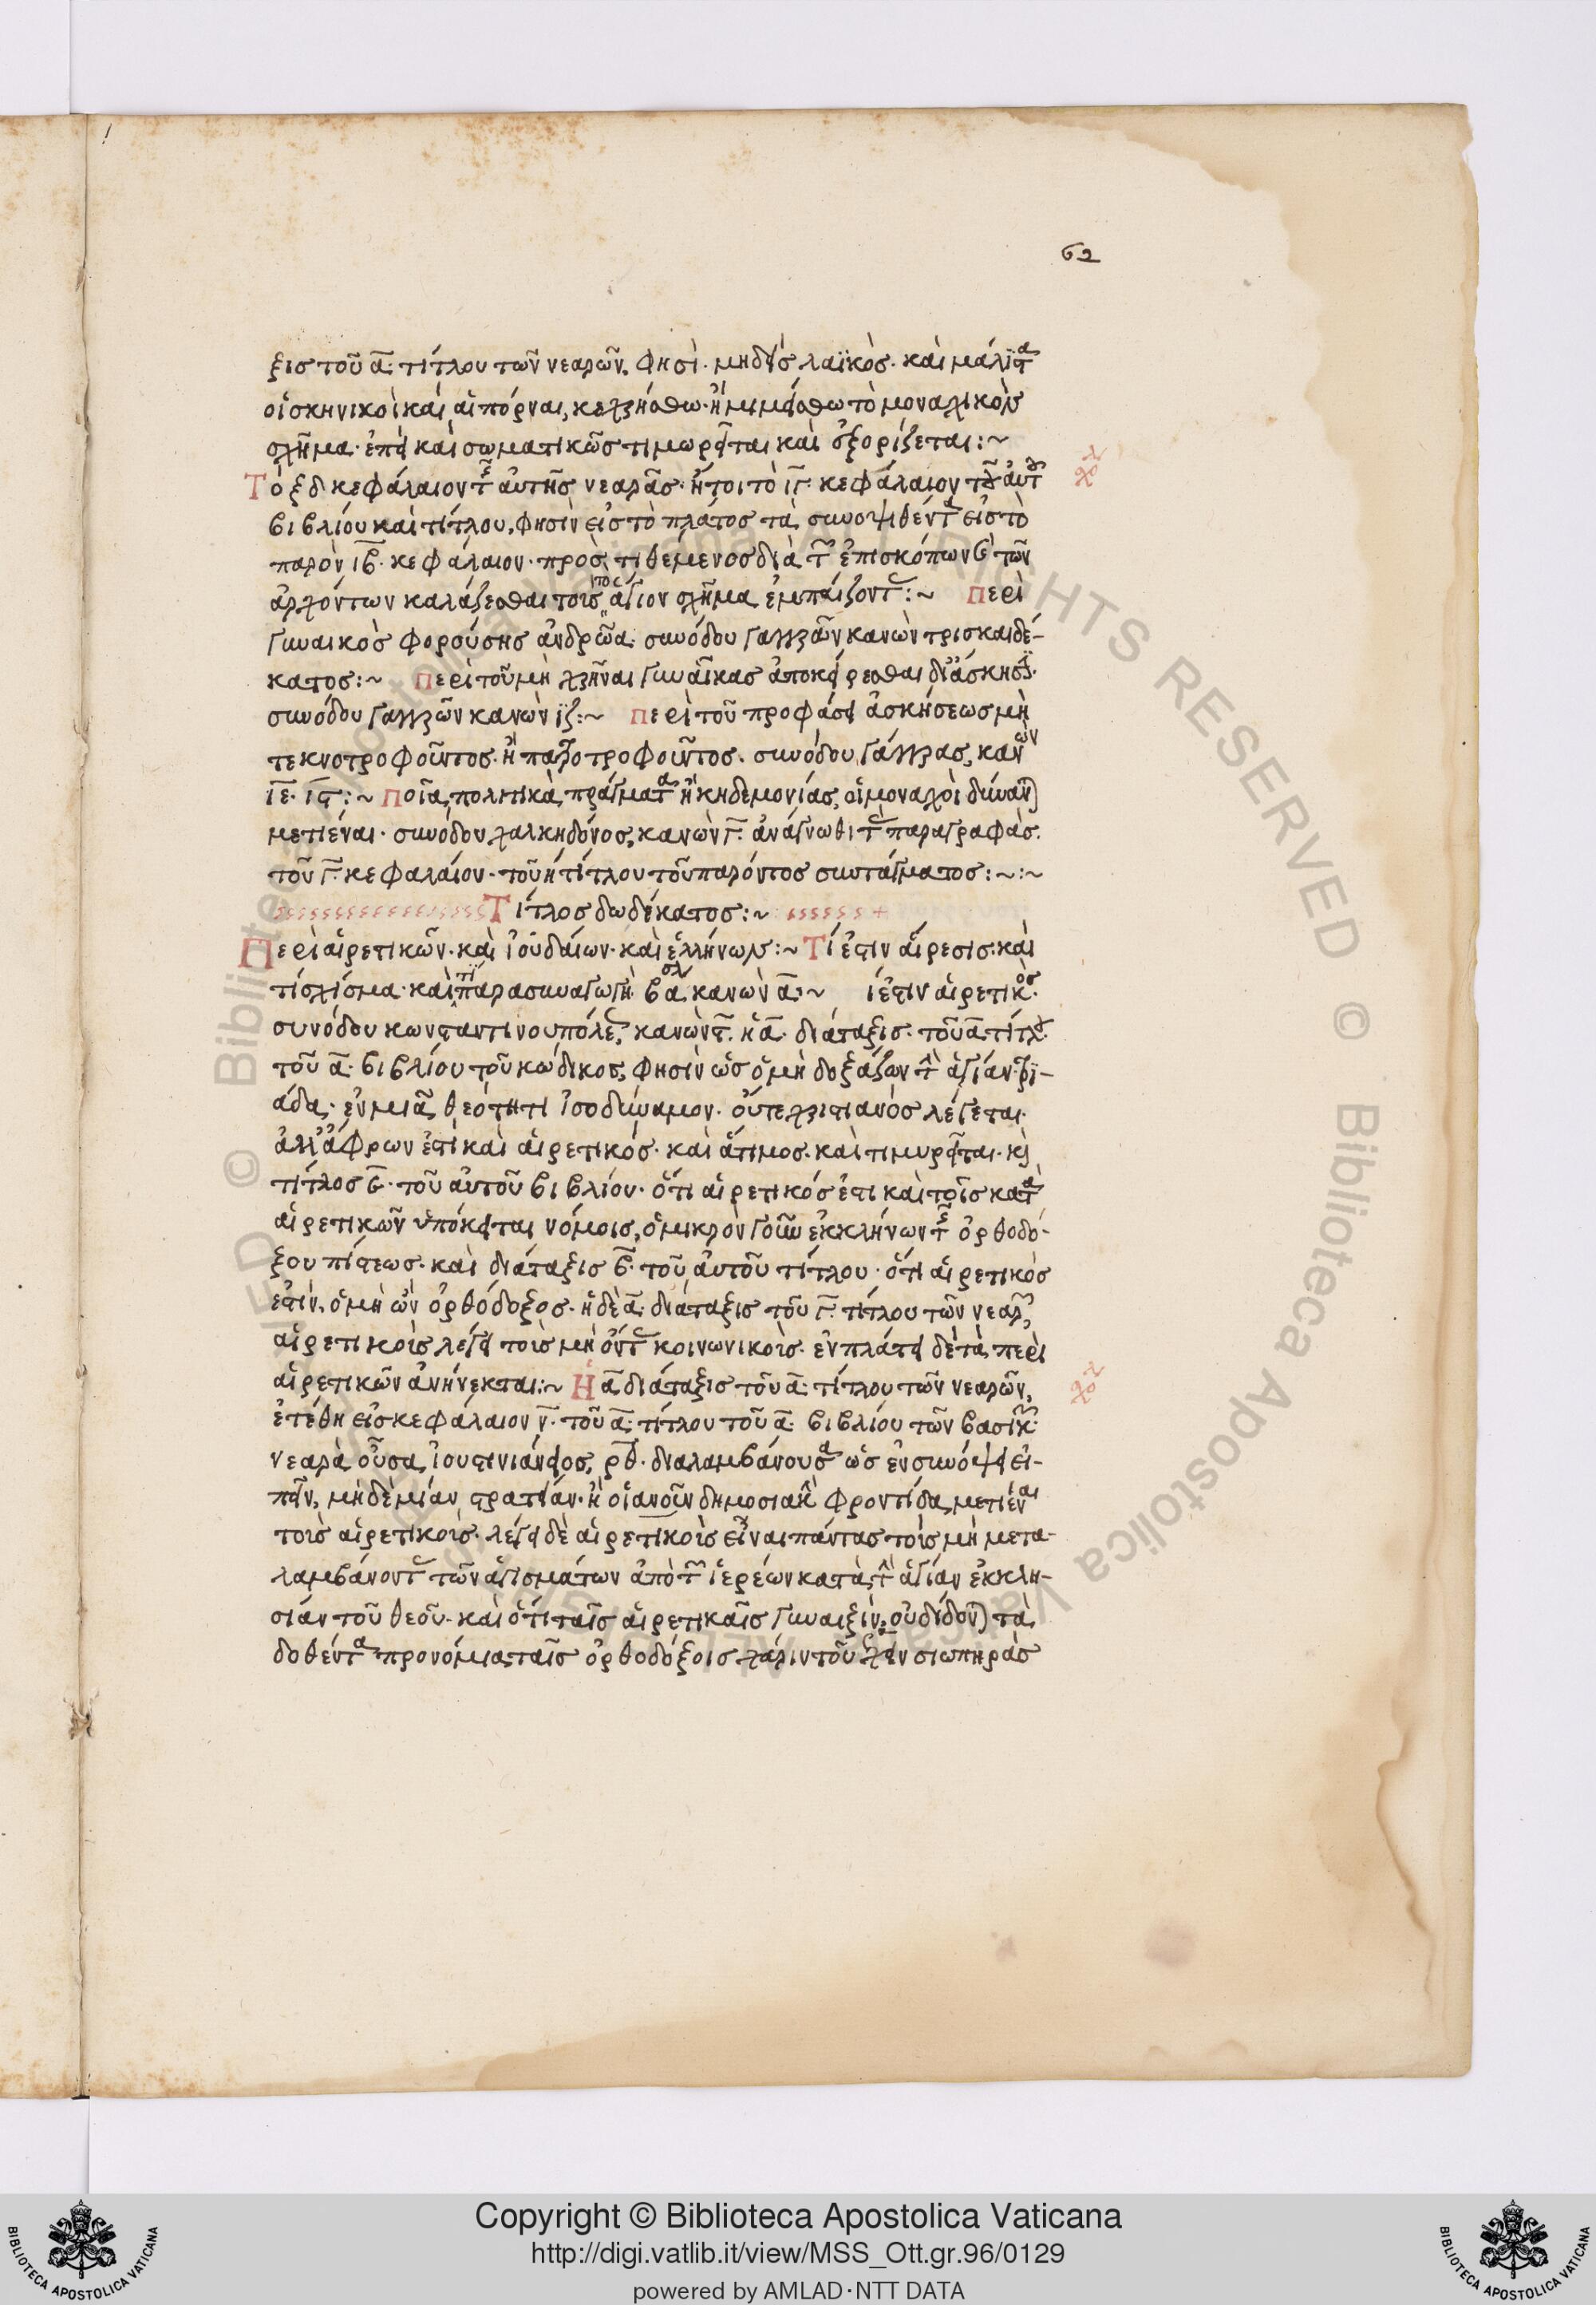 62
ξις τοῦ α. τίτλου τῶν νεαρῶν, φησὶ. μηδεὶς λαϊκὸς. καὶ μάλιστα
οἱ σκηνικοὶ καὶ αἱ πόρναι, κεχρήσθω. ἢ μιμείσθω τὸ μοναχικὸν
σχῆμα. ἐπεὶ καὶ σωματικῶς τιμωρεῖται καὶ ἐξορίζεται:~
Τὸ ξδ κεφάλαιον τῆς αὐτῆς νεαρᾶς. ἤτοι τὸ ιγ. κεφάλαιον τοῦ αὐτοῦ
βιβλίου καὶ τίτλου, φησὶν εἰς τὸ πλάτος τὰ συνοψιθέντα εἰς τὸ
παρὸν ιβ. κεφάλαιον. προστιθέμενος διὰ τῶν ἐπισκόπων καὶ τῶν
ἀρχόντων κολάζεσθαι τοὺς τὸ ἅγιον σχῆμα ἐμπαίζοντας:~ Περὶ
γυναικὸς φορούσης ἀνδρῶα. συνόδου γαγγρῶν κανὼν τρισκαιδέ-
κατος:~ Περὶ τοῦ μὴ χρῆναι γυναῖκας ἀποκείρεσθαι δι' ἄσκησιν.
συνόδου γαγγρῶν κανὼν ιζ:~ Περὶ τοῦ προφάσει ἀσκήσεως μὴ
τεκνοτροφοῦντος. ἢ πατροτροφοῦντος. συνόδου γάγγρας, κανὼν
ιε. ις:~ Ποῖα πολιτικὰ πράγματα ἢ κηδεμονίας, οἱ μοναχοὶ δύνανται
μετιέναι. συνόδου χαλκηδόνος, κανὼν γ. ἀνάγνωθι τὰς παραγραφὰς.
τοῦ γ. κεφαλαίου. τοῦ η τίτλου τοῦ παρόντος συντάγματος:~:~
Τίτλος δωδέκατος:~
Περὶ αἱρετικῶν. καὶ ἰουδαίων. καὶ ἑλλήνων:~ Τί ἐστιν αἵρεσις. καὶ
τί σχίσμα. καὶ τί παρασυναγωγὴ. βασλ κανὼν α:~ ί ἐστιν αἱρετικὸς.
συνόδου κωνσταντινουπόλεως, κανὼν ς. ἡ α. διάταξις. τοῦ α. τίτλου
τοῦ α. βιβλίου τοῦ κώδικος, φησὶν ὡς ὁ μὴ δοξάζων τὴν ἁγίαν τρι-
άδα. ἐν μιᾷ θεότητι ἰσοδύναμον. οὔτε χριστιανὸς λέγεται.
ἀλλ' ἄφρων ἐστὶ καὶ αἱρετικός. καὶ ἄτιμος. καὶ τιμωρεῖται. καὶ
τίτλος ϛ. τοῦ αὐτοῦ βιβλίου. ὅτι αἱρετικός ἐστι καὶ τοῖς κατὰ
αἱρετικῶν ὑπόκειται νόμοις, ὁ μικρὸν γοῦν ἐκκλήνων τῆς ὀρθοδό-
ξου πίστεως. καὶ διάταξις β. τοῦ αὐτοῦ τίτλου. ὅτι αἱρετικός
ἐστιν, ὁ μὴ ὢν ὀρθόδοξος. ἡ δὲ α. διάταξις τοῦ γ. τίτλου τῶν νεαρῶν,
αἱρετικοὺς λέγει τοὺς μὴ ὄντας κοινωνικοὺς. ἐν πλάτει δὲ τὰ περὶ
αἱρετικῶν ἀνήνεκται:~ Ἡ α διάταξις τοῦ α. τίτλου τῶν νεαρῶν,
ἐτέθη εἰς κεφάλαιον ν. τοῦ α. τίτλου τοῦ α. βιβλίου τῶν βασιλικῶν.
νεαρὰ οὖσα ἰουστινιάνειος, ρθ. διαλαμβάνουσα ὡς ἐν συνόψει εἰ-
πεῖν, μηδεμίαν στρατείαν. ἢ οἱανοῦν δημοσιακὴν φροντίδα, μετιέναι
τοὺς αἱρετικοὺς. λέγει δὲ αἱρετικοὺς εἶναι πάντας τοὺς μὴ μετα-
λαμβάνοντας τῶν ἁγιασμάτων ἀπὸ τῶν ἱερέων κατὰ τὴν ἁγίαν ἐκκλη-
σίαν τοῦ θεοῦ. καὶ ὅτι ταῖς αἱρετικαῖς γυναιξὶν, οὐ δίδονται τὰ
δοθέντα προνόμια ταῖς ὀρθοδόξοις χάριν τοῦ ἔχειν σιωπηρὰς
Copyright © Biblioteca Apostolica Vaticana
http://digi.vatlib.it/view/MSS_Ott.gr.96/0129
powered by AMLAD·NTT DATA